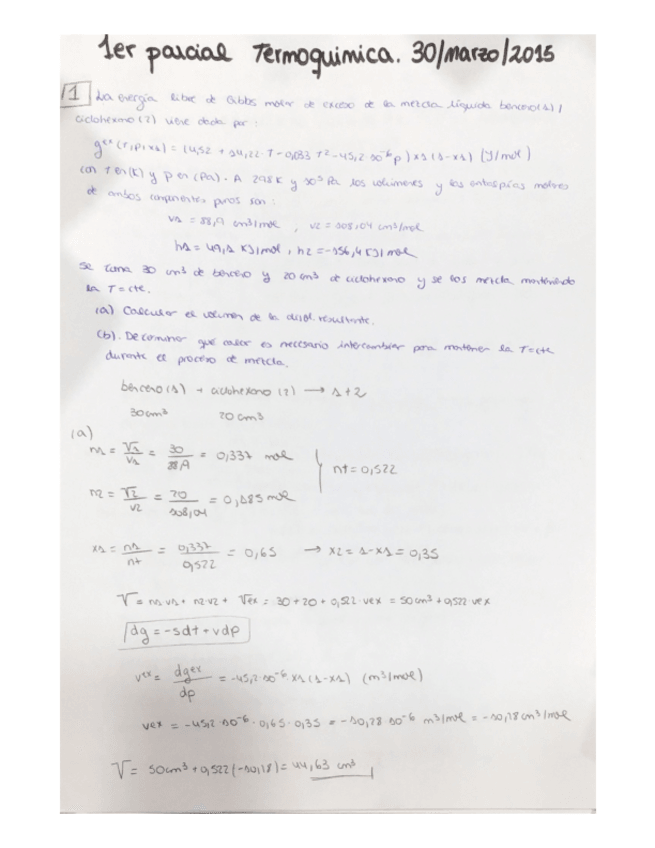 1er parcial Termoquimica. 30/marzo/2015
1 La energía libre de Gibbs molar de exceso de la mezcla líquida benceno(1)/
ciclohexano (2) viene dada por:
g^ex (T,P,x1) = (4,52 + 14,22·T - 0,033 T^2 - 45,2·10^-6 p) x1 (1-x1) (J/mol)
con T en (K) y p en (Pa). A 298 K y 10^5 Pa los volúmenes y las entalpías molares
de ambos componentes puros son:
v1 = 88,9 cm3/mol , v2 = 108,04 cm3/mol
h1 = 49,1 KJ/mol , h2 = -156,4 KJ/mol
Se toma 30 cm3 de benceno y 20 cm3 de ciclohexano y se los mezcla manteniendo
la T = cte.
(a) Calcular el volumen de la disol. resultante.
(b). Determinar qué calor es necesario intercambiar para mantener la T=cte
durante el proceso de mezcla.
benceno (1) + ciclohexano (2) → 1+2
30cm3 20cm3
(a)
n1 = V1/v1 = 30/88,9 = 0,337 mol
nt = 0,522
n2 = V2/v2 = 20/108,04 = 0,185 mol
x1 = n1/nt = 0,337/0,522 = 0,65 → x2 = 1-x1 = 0,35
V = n1·v1 + n2·v2 + Vex = 30+20+0,522·vex = 50cm3 + 0,522·vex
dg = -sdt + vdp
v^ex = dg^ex/dp = -45,2·10^-6·x1 (1-x1) (m3/mol)
vex = -45,2·10^-6·0,65·0,35 = -10,28·10^-6 m3/mol = -10,28 cm3/mol
V = 50cm3 + 0,522(-10,28) = 44,63 cm3